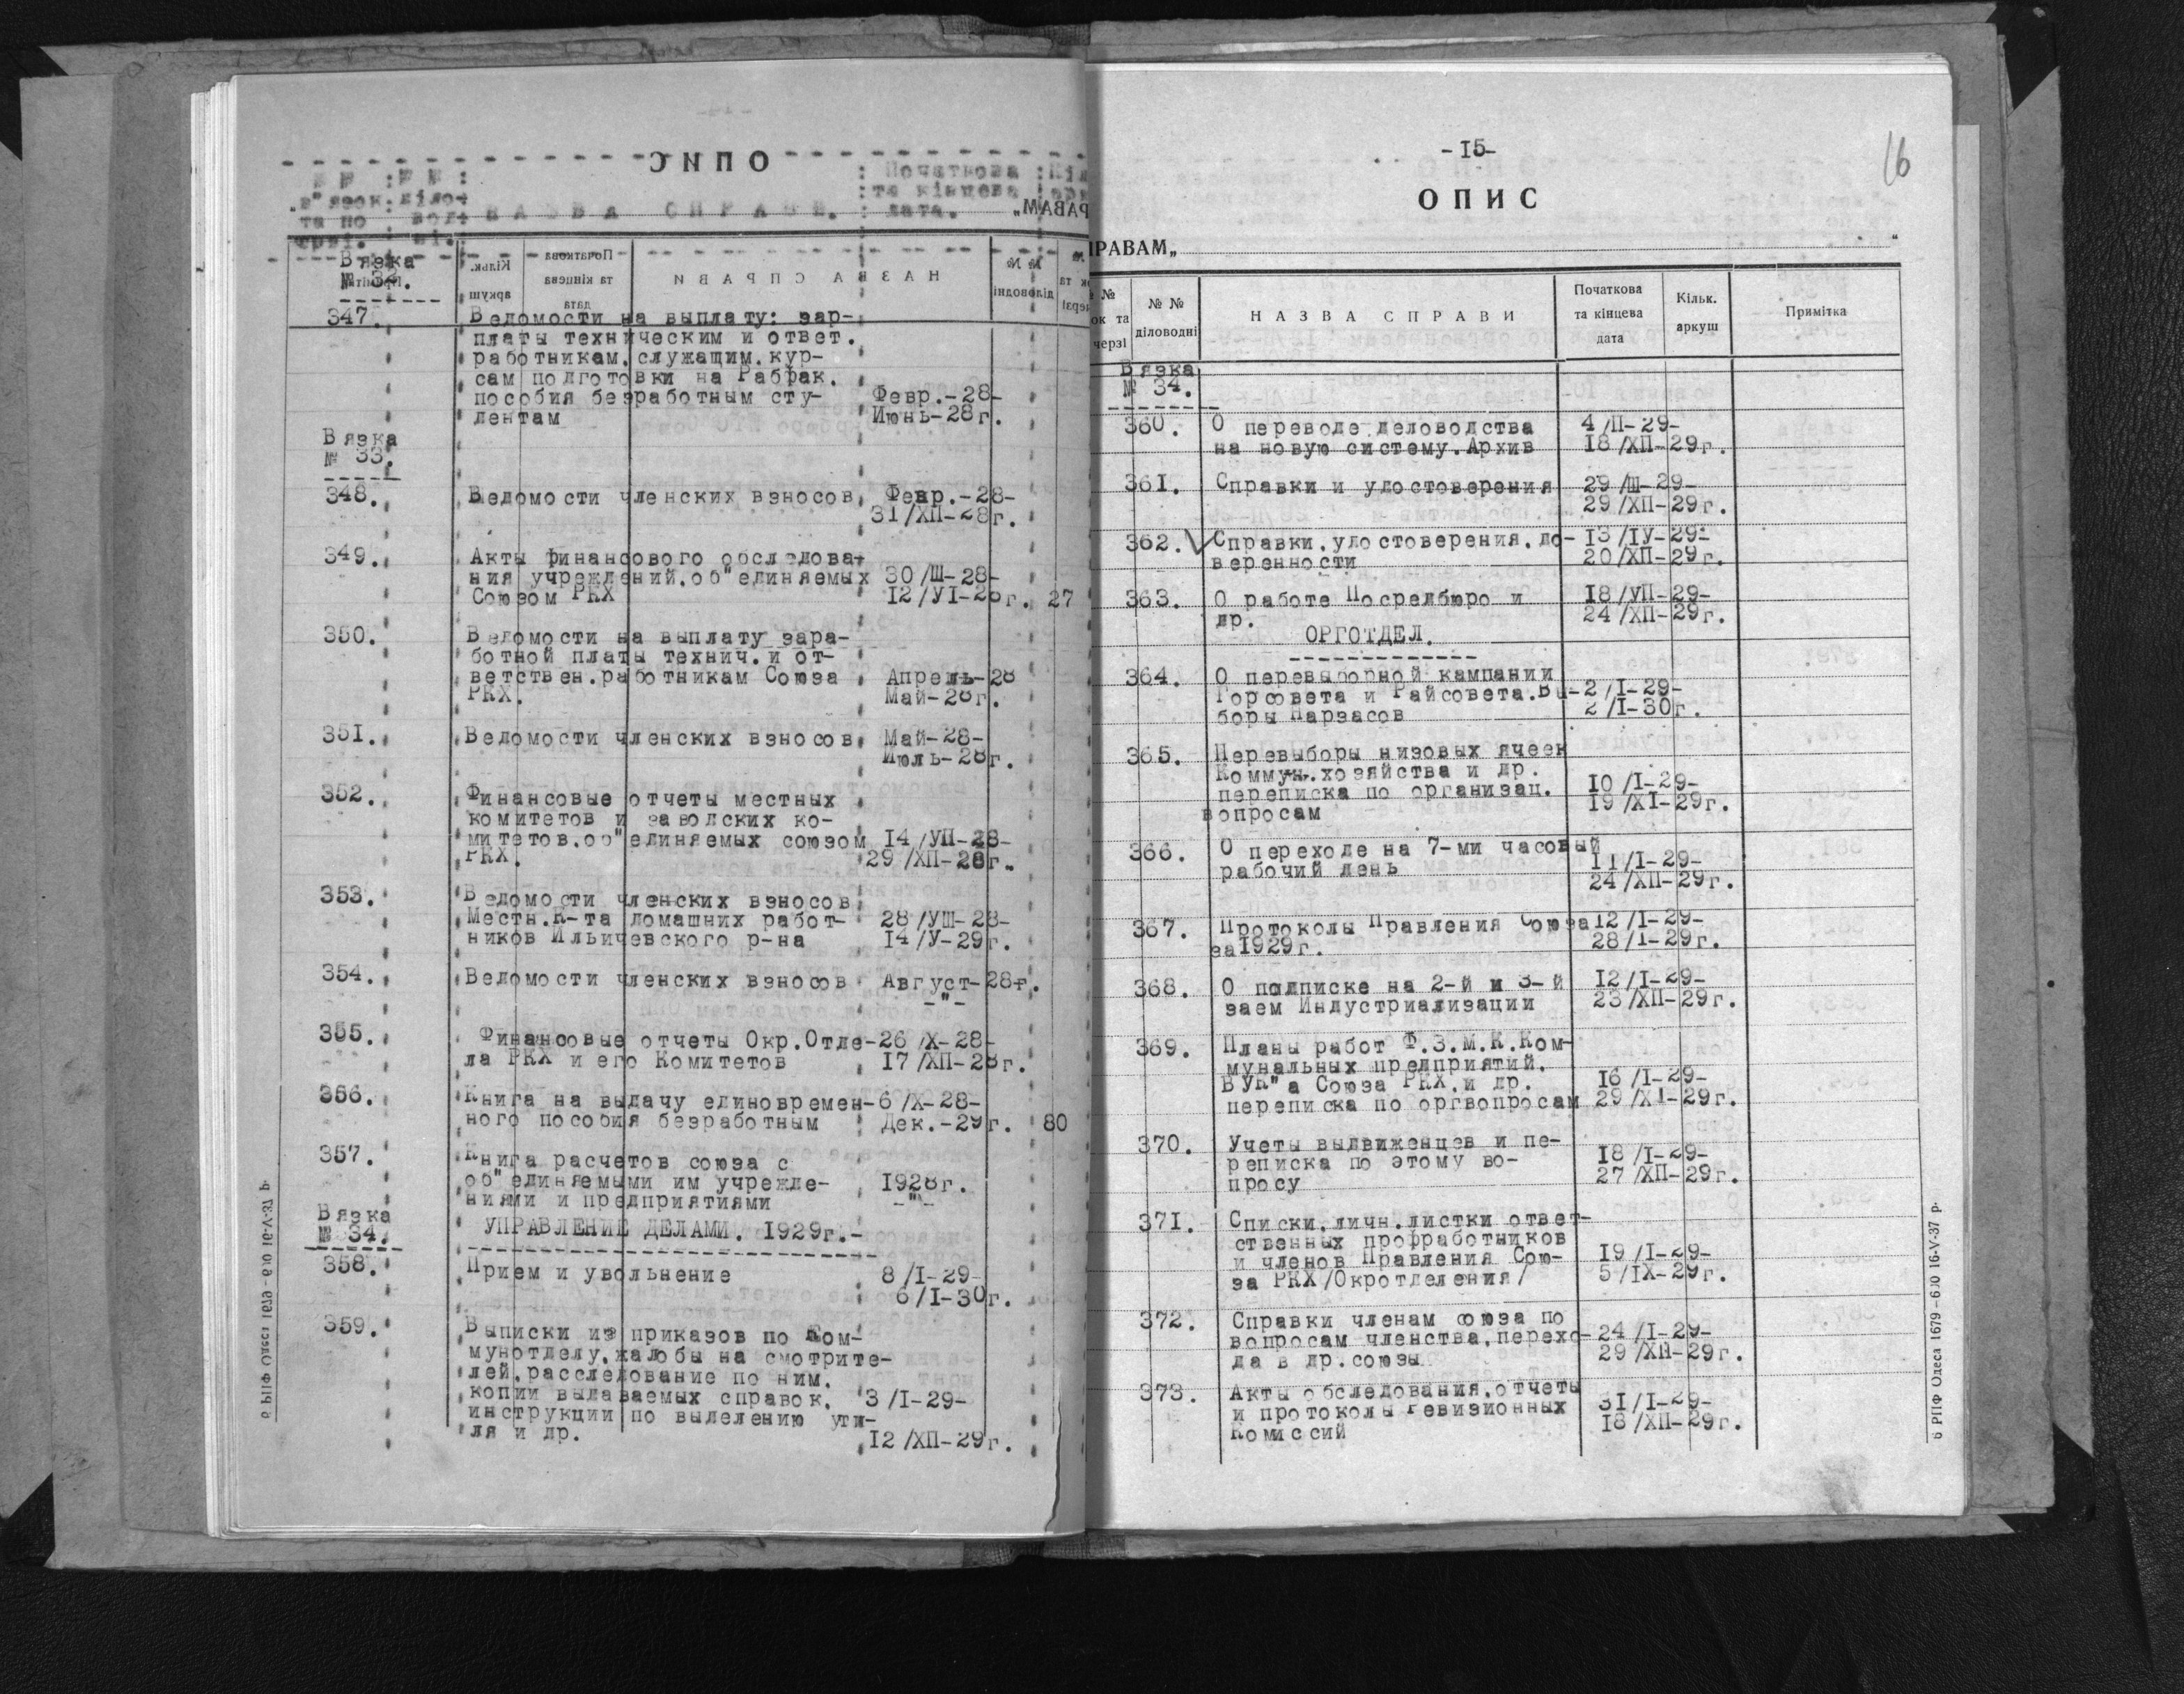 ОПИС
№ № : № № :
в"язок: діло-
та по вод-
черзі. ні.
НАЗВА СПРАВИ.
Початкова
та кінцева
дата.
Вязка
№ 32.
347. Ведомости на выплату: зар-
платы техническим и ответ.
работникам, служащим, кур-
сам подготовки на Рабфак,
пособия безработным сту- Февр.-28-
дентам Июнь-28г.
Вязка
№ 33.
348. Ведомости членских взносов Февр.-28-
31/ХП-28г.
349. Акты финансового обследова-
ния учреждений, об"единяемых 30/Ш-28-
Союзом РКХ 12/УІ-28г. 27
350. Ведомости на выплату зара-
ботной платы технич. и от-
ветствен.работникам Союза Апрель-28
РКХ. Май-28г.
351. Ведомости членских взносов Май-28-
Июль-28г.
352. Финансовые отчеты местных
комитетов и заводских ко-
митетов, об"единяемых союзом 14/УП-28-
РКХ. 29/ХП-28г.
353. Ведомости членских взносов
Местн.К-та домашних работ- 28/УШ-28-
ников Ильичевского р-на 14/У-29г.
354. Ведомости членских взносов Август-28г.
-"-
355. Финансовые отчеты Окр.Отде- 26/Х-28-
ла РКХ и его Комитетов 17/ХП-28г.
356. Книга на выдачу единовремен- 6/Х-28-
ного пособия безработным Дек.-29г. 80
357. Книга расчетов союза с
об"единяемыми им учрежде- 1928г.
ниями и предприятиями -"-
Вязка
№ 34. УПРАВЛЕНИЕ ДЕЛАМИ. 1929г.-
358. Прием и увольнение 8/І-29-
6/І-30г.
359. Выписки из приказов по Ком-
мунотделу, жалобы на смотрите-
лей, расследование по ним,
копии выдаваемых справок, 3/І-29-
инструкции по выделению ути-
ля и др. 12/ХП-29г.
-15-
16
ОПИС
ПРАВАМ„ “
№
ок та
черзі
№ №
діловодні
НАЗВА СПРАВИ
Початкова
та кінцева
дата
Кільк.
аркуш
Примітка
Вязка
№ 34.
360. О переводе деловодства 4/П-29-
на новую систему. Архив 18/ХП-29г.
361. Справки и удостоверения 29/Ш-29-
29/ХП-29г.
362. Справки, удостоверения, до- 13/ІУ-29-
веренности 20/ХП-29г.
363. О работе Посредбюро и 18/УП-29-
др. 24/ХП-29г.
ОРГОТДЕЛ.
364. О перевыборной кампании
Горсовета и Райсовета. Вы- 2/І-29-
боры Нарзасов 2/І-30г.
365. Перевыборы низовых ячеек
Коммун.хозяйства и др.
переписка по организац. 10/І-29-
вопросам 19/ХІ-29г.
366. О переходе на 7-ми часовый
рабочий день 11/І-29-
24/ХП-29г.
367. Протоколы Правления Союза 12/І-29-
за 1929г. 28/І-29г.
368. О подписке на 2-й и 3-й 12/І-29-
заем Индустриализации 23/ХП-29г.
369. Планы работ Ф.З.М.К.Ком-
мунальных предприятий,
ВУК"а Союза РКХ, и др. 16/І-29-
переписка по оргвопросам 29/ХІ-29г.
370. Учеты выдвиженцев и пе-
реписка по этому во- 18/І-29-
просу 27/ХП-29г.
371. Списки, личн.листки ответ-
ственных профработников
и членов Правления Сою- 19/І-29-
за РКХ/Окротделения/ 5/ІХ-29г.
372. Справки членам союза по
вопросам членства, перехо- 24/І-29-
да в др.союзы 29/ХП-29г.
373. Акты обследования, отчеты
и протоколы Ревизионных 31/І-29-
Комиссий 18/ХП-29г.
6 РПФ Одеса 1679-600 16-V-37 р.